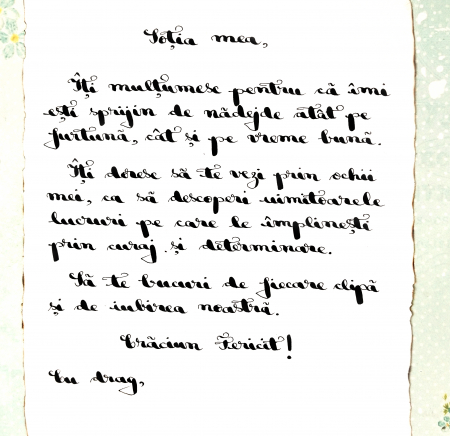 Soția mea,
Îți mulțumesc pentru că îmi
ești sprijin de nădejde atât pe
furtună, cât și pe vreme bună.
Îți doresc să te vezi prin ochii
mei, ca să descoperi uimitoarele
lucruri pe care le împlinești
prin curaj și determinare.
Să te bucuri de fiecare clipă
și de iubirea noastră.
Crăciun Fericit!
Cu drag,